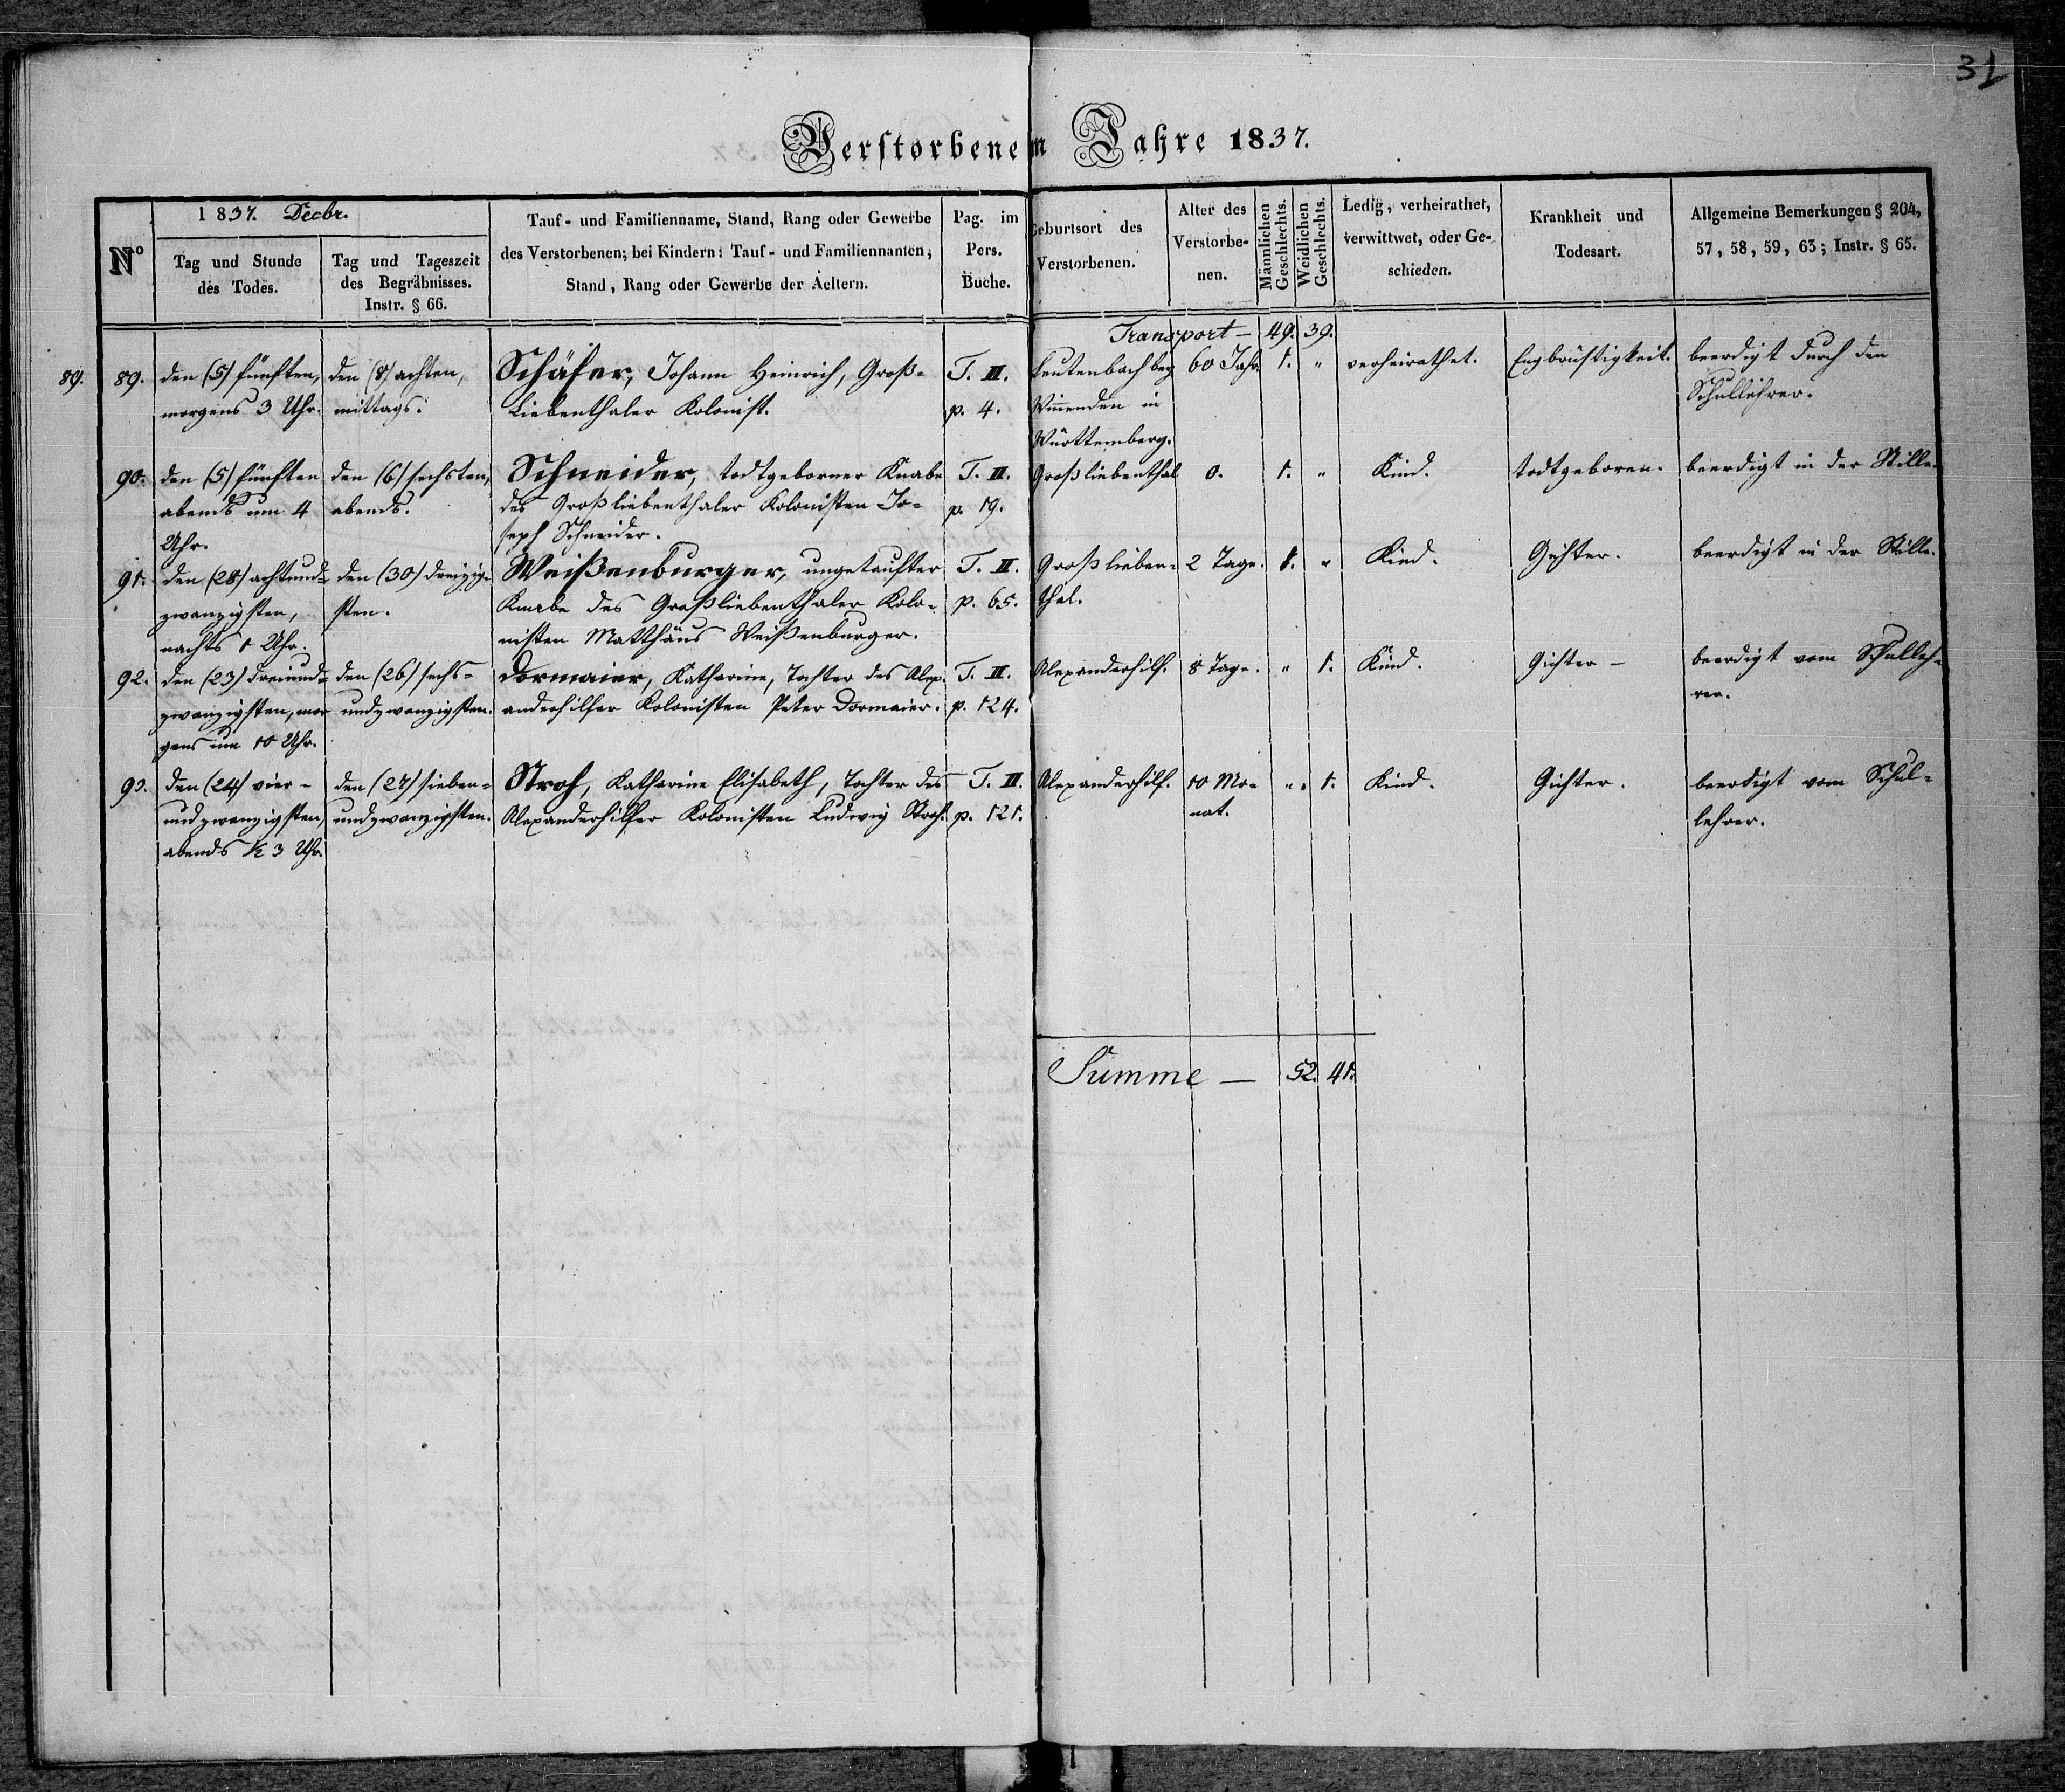 31
Verstorbene im Jahre 1837.
N°
1837. Decbr.
Tag und Stunde des Todes.
Tag und Tageszeit des Begräbnisses. Instr. § 66.
Tauf- und Familienname, Stand, Rang oder Gewerbe
des Verstorbenen; bei Kindern: Tauf- und Familiennanten;
Stand, Rang oder Gewerbe der Aeltern.
Pag. im Pers. Buche.
Geburtsort des Verstorbenen.
Alter des Verstorbe-nen.
Männlichen Geschlechts.
Weidlichen Geschlechts.
Ledig, verheirathet, verwittwet, oder Ge-schieden.
Krankheit und Todesart.
Allgemeine Bemerkungen § 204, 57, 58, 59, 63; Instr. § 65.
Transport — 49. 39.
89. 89. den (5) fünften, den (8) achten, Schäfer, Johann Heinrich, Groß- T. III. Leutenbach bey 60 Jahr. 1. " verheirathet. Engbrüstigkeit. beerdigt durch den
morgens 3 Uhr. mittags. Liebenthaler Kolonist. p. 4. Winenden in Schullehrer.
Württemberg.
90. den (5) fünften den (6) sechsten, Schneider, todtgeborner Knabe T. III. Großliebenthal 0. 1. " Kind. todtgeboren. beerdigt in der Stille.
abends um 4 abends. des Großliebenthaler Kolonisten Jo- p. 19.
Uhr. seph Schneider.
91. den (28) achtund- den (30) dreizig- Weißenburger, ungetaufter T. II. Großlieben- 2 Tage. 1. " Kind. Gichter. beerdigt in der Stille.
zwanzigsten, sten. Knabe des Großliebenthaler Kolo- p. 65. thal.
nachts 1 Uhr. nisten Matthäus Weißenburger.
92. den (23) dreiund- den (26) sechs- Dormaier, Katharine, Tochter des Alex- T. III. Alexanderhilf. 8 Tage. " 1. Kind. Gichter — beerdigt vom Schulleh-
zwanzigsten, mor undzwanzigsten. anderhilfer Kolonisten Peter Dormaier. p. 124. rer.
gens um 10 Uhr.
93. den (24) vier- den (27) sieben- Stroh, Katharine Elisabeth, Tochter des T. III. Alexanderhilf. 10 Mo- " 1. Kind. Gichter. beerdigt vom Schul-
undzwanzigsten, undzwanzigsten. Alexanderhilfer Kolonisten Ludwig Stroh. p. 121. nat. lehrer.
abends ½ 3 Uhr.
Summe — 52. 41.